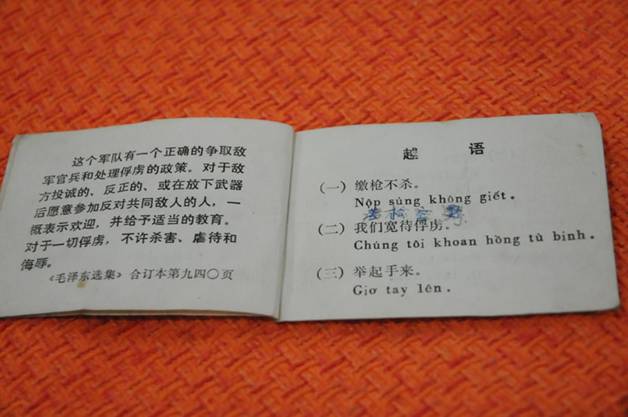 这个军队有一个正确的争取敌
军官兵和处理俘虏的政策。对于敌
方投诚的、反正的、或在放下武器
后愿意参加反对共同敌人的人，一
概表示欢迎，并给予适当的教育。
对于一切俘虏，不许杀害、虐待和
侮辱。
《毛泽东选集》合订本第九四〇页
越 语
（一）缴枪不杀。
Nộp súng không giết.
（二）我们宽待俘虏。
Chúng tôi khoan hồng tù binh.
（三）举起手来。
Giơ tay lên.